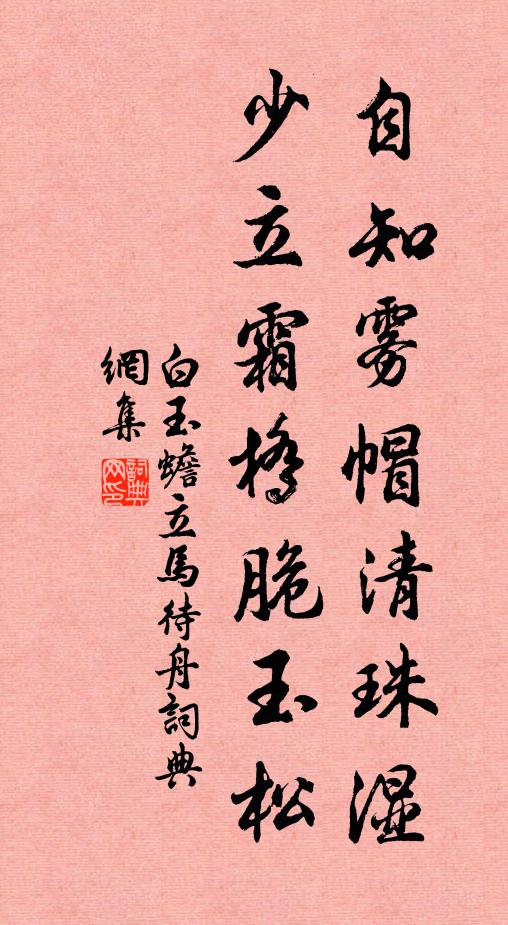 自知雾帽清珠湿
少立霜桥脆玉松
白玉蟾立馬待舟詞典
網集
詞典网印